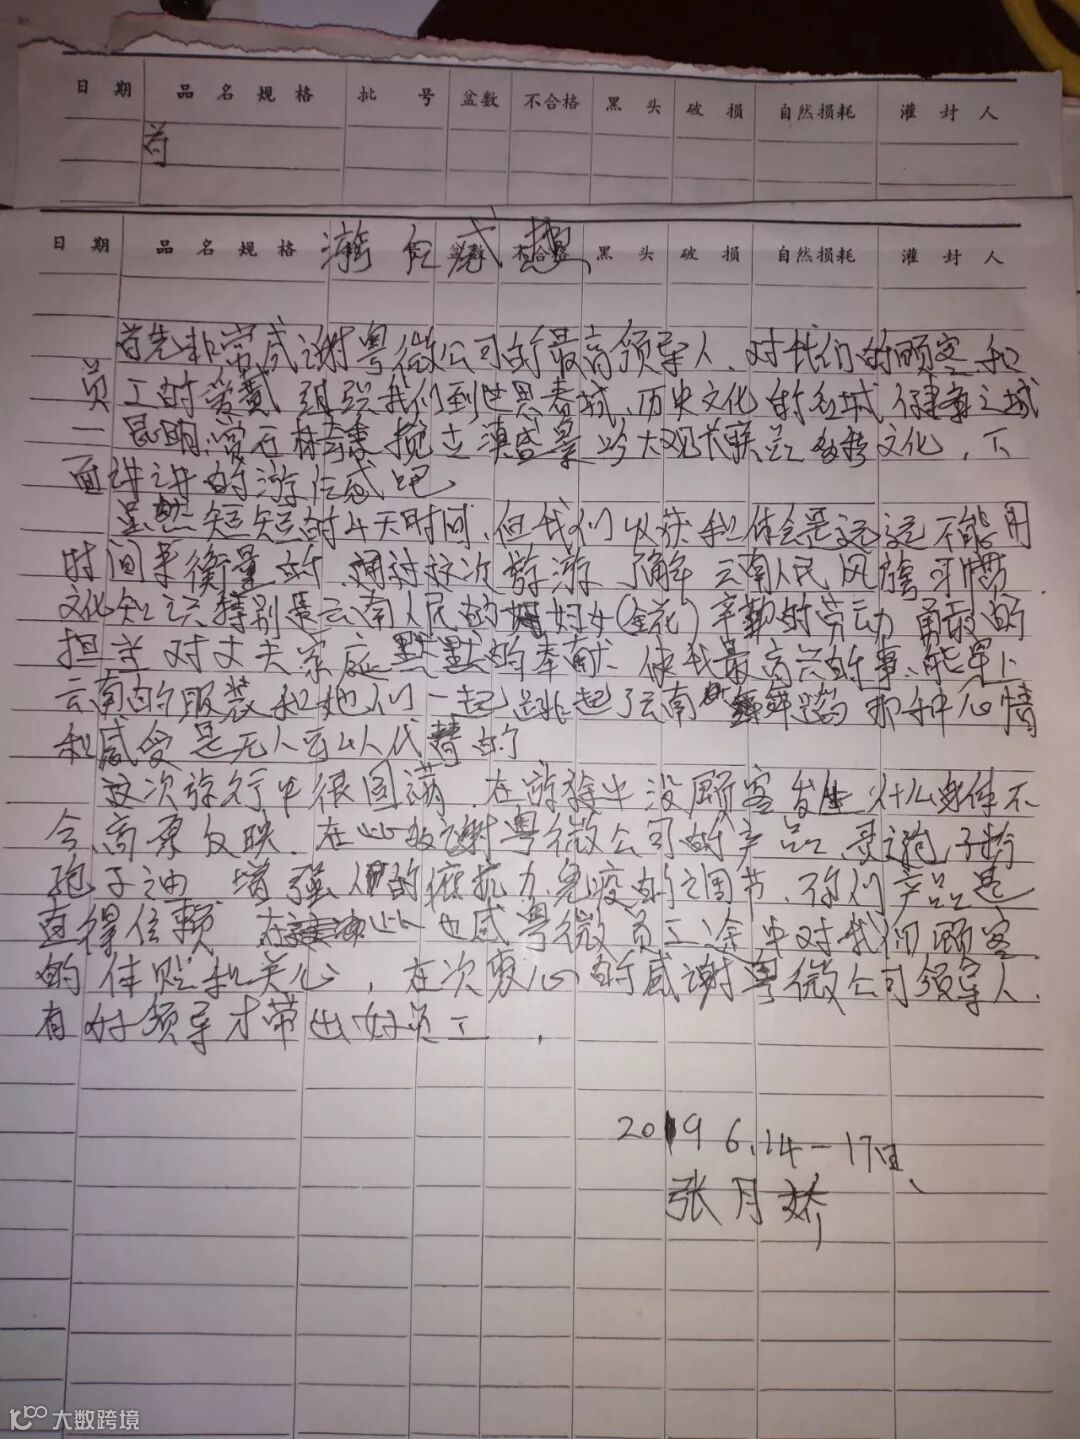 日 期 品 名 规 格 批 号 盆数 不合格 黑 头 破 损 自然损耗 灌 封 人
日 期 品 名 规 格 盆数 不合格 黑 头 破 损 自然损耗 灌 封 人
游 后 感 想
首先非常感谢粤微公司的最高领导人、对我们的顾客和
员工的爱戴 组织我们到世界春城、历史文化的名城、健康之城
一昆明、石林 揽 滇盛景 大观长联 文化，下
面讲讲的游后感吧
虽然短短的4天时间，但我们收获和体会是远远不能用
时间来衡量的，通过这次旅游 了解 云南人民 风 习惯
文化知识 特别是云南人民的妇女（金花）辛勤的劳动 勇敢的
担当 对丈夫家庭默默的奉献、使我最高兴的事、能穿上
云南的服装和她们一起跳起了云南 舞蹈 那种心情
和感受是无人可以代替的
这次旅行中很圆满，在旅途中没顾客发生什么身体不
今、高原反映、在此 谢粤微公司的产品、灵芝孢子粉
孢子油 增强人的抵抗力免疫的之调节、你们产品是
直得信赖 在此也感粤微员工途中对我们顾客
的体贴和关心，在次衷心的感谢粤微公司领导人、
有好领导才带出好员工．
2019 6.14－17日、
张月娇
大数跨境